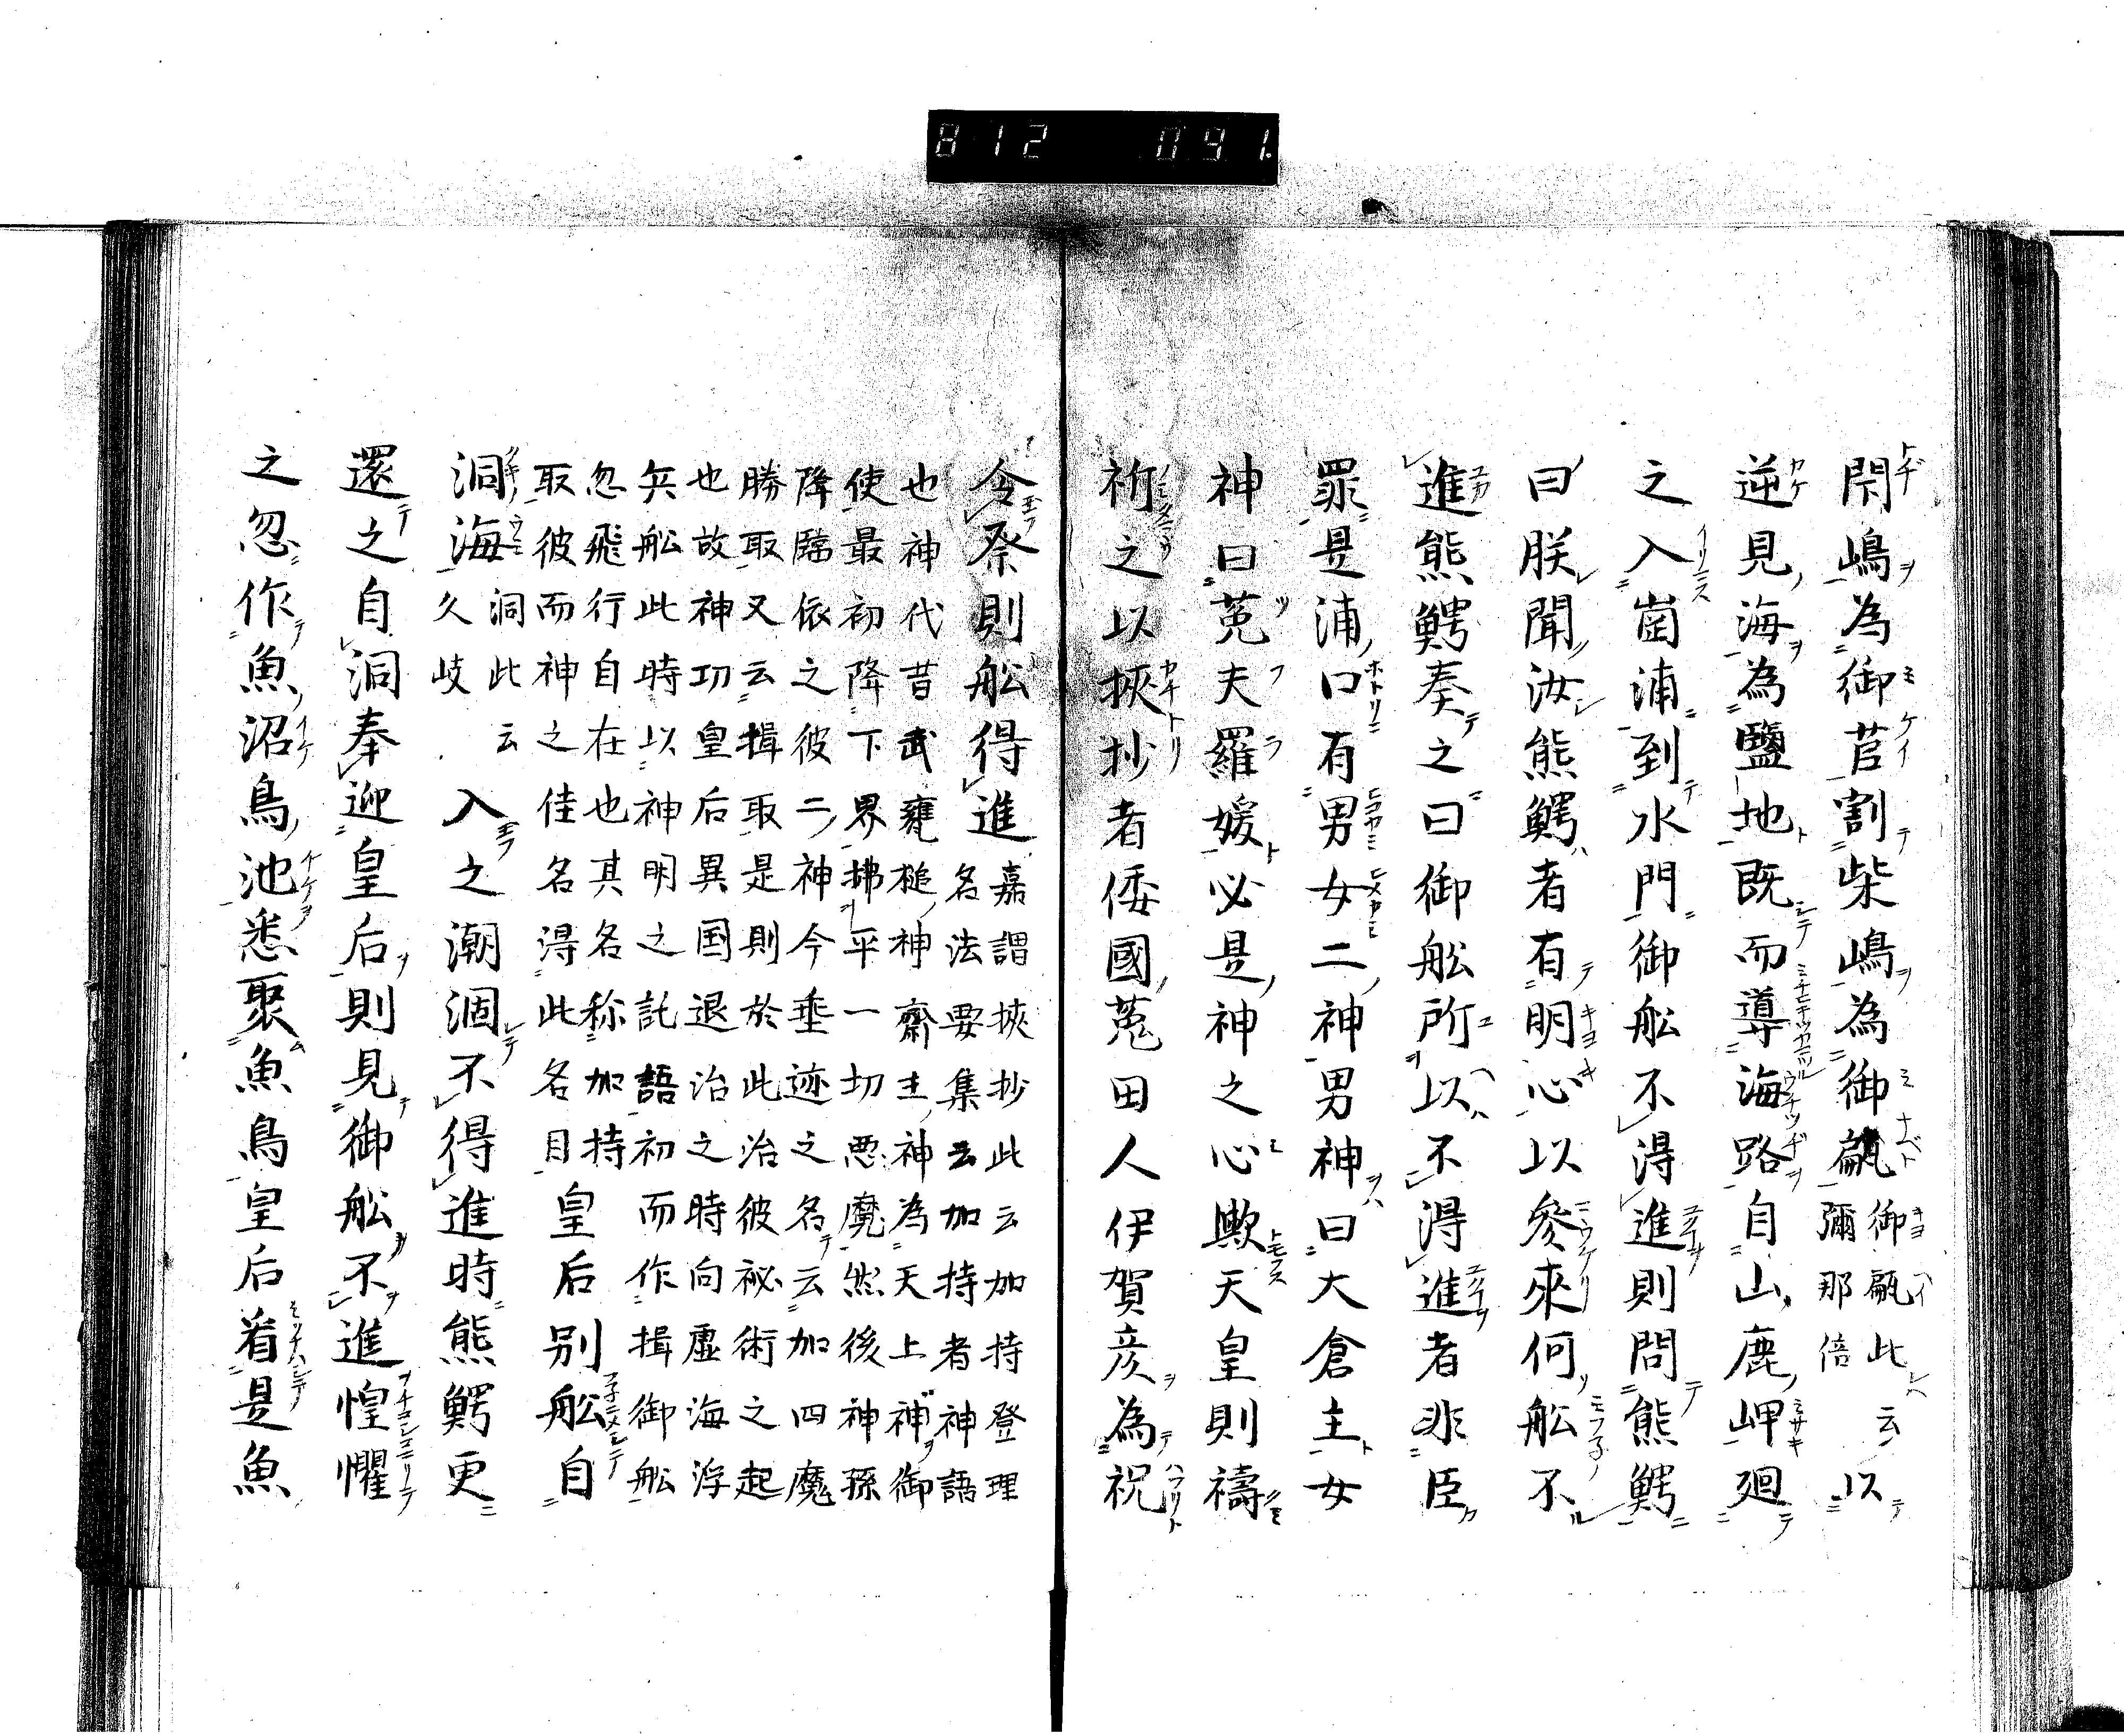 812 091.
閇嶋為御苣割柴嶋為御甂御甂此云彌那倍以
逆見海為鹽地既而導海路自山鹿岬廻
之入崗浦到水門御舩不得進則問熊鰐
曰朕聞汝熊鰐者有明心以參來何舩不
進熊鰐奏之曰御舩所以不得進者非臣
罪是浦口有男女二神男神曰大倉主女
神曰菟夫羅媛必是神之心歟天皇則禱
祈之以挾抄者倭國菟田人伊賀彦為祝
令祭則舩得進嘉謂挾抄此云加持登理
名法要集云加持者神語
也神代昔武甕槌神齋主神為天上神御
使最初降下界拂平一切悪魔然後神孫
降臨依之彼二神今垂迹之名云加四魔
勝取又云揖取是則於此治彼祕術之起
也故神功皇后異国退治之時向虚海浮
兵舩此時以神明之託語初而作揖御舩
忽飛行自在也其名称加持
取彼而神之佳名得此名目皇后別舩自
洞海洞此云久岐入之潮涸不得進時熊鰐更
還之自洞奉迎皇后則見御舩不進惶懼
之忽作魚沼鳥池悉聚魚鳥皇后看是魚